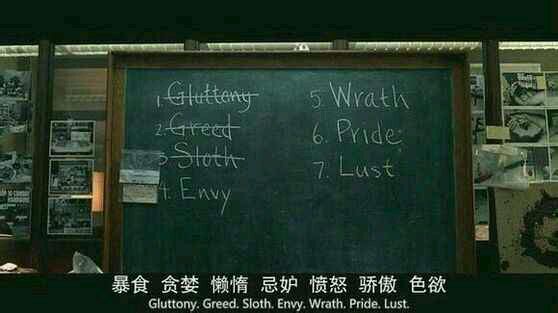 1. Gluttony
2. Greed
3. Sloth
4. Envy
5. Wrath
6. Pride
7. Lust
暴食 贪婪 懒惰 忌妒 愤怒 骄傲 色欲
Gluttony. Greed. Sloth. Envy. Wrath. Pride. Lust.